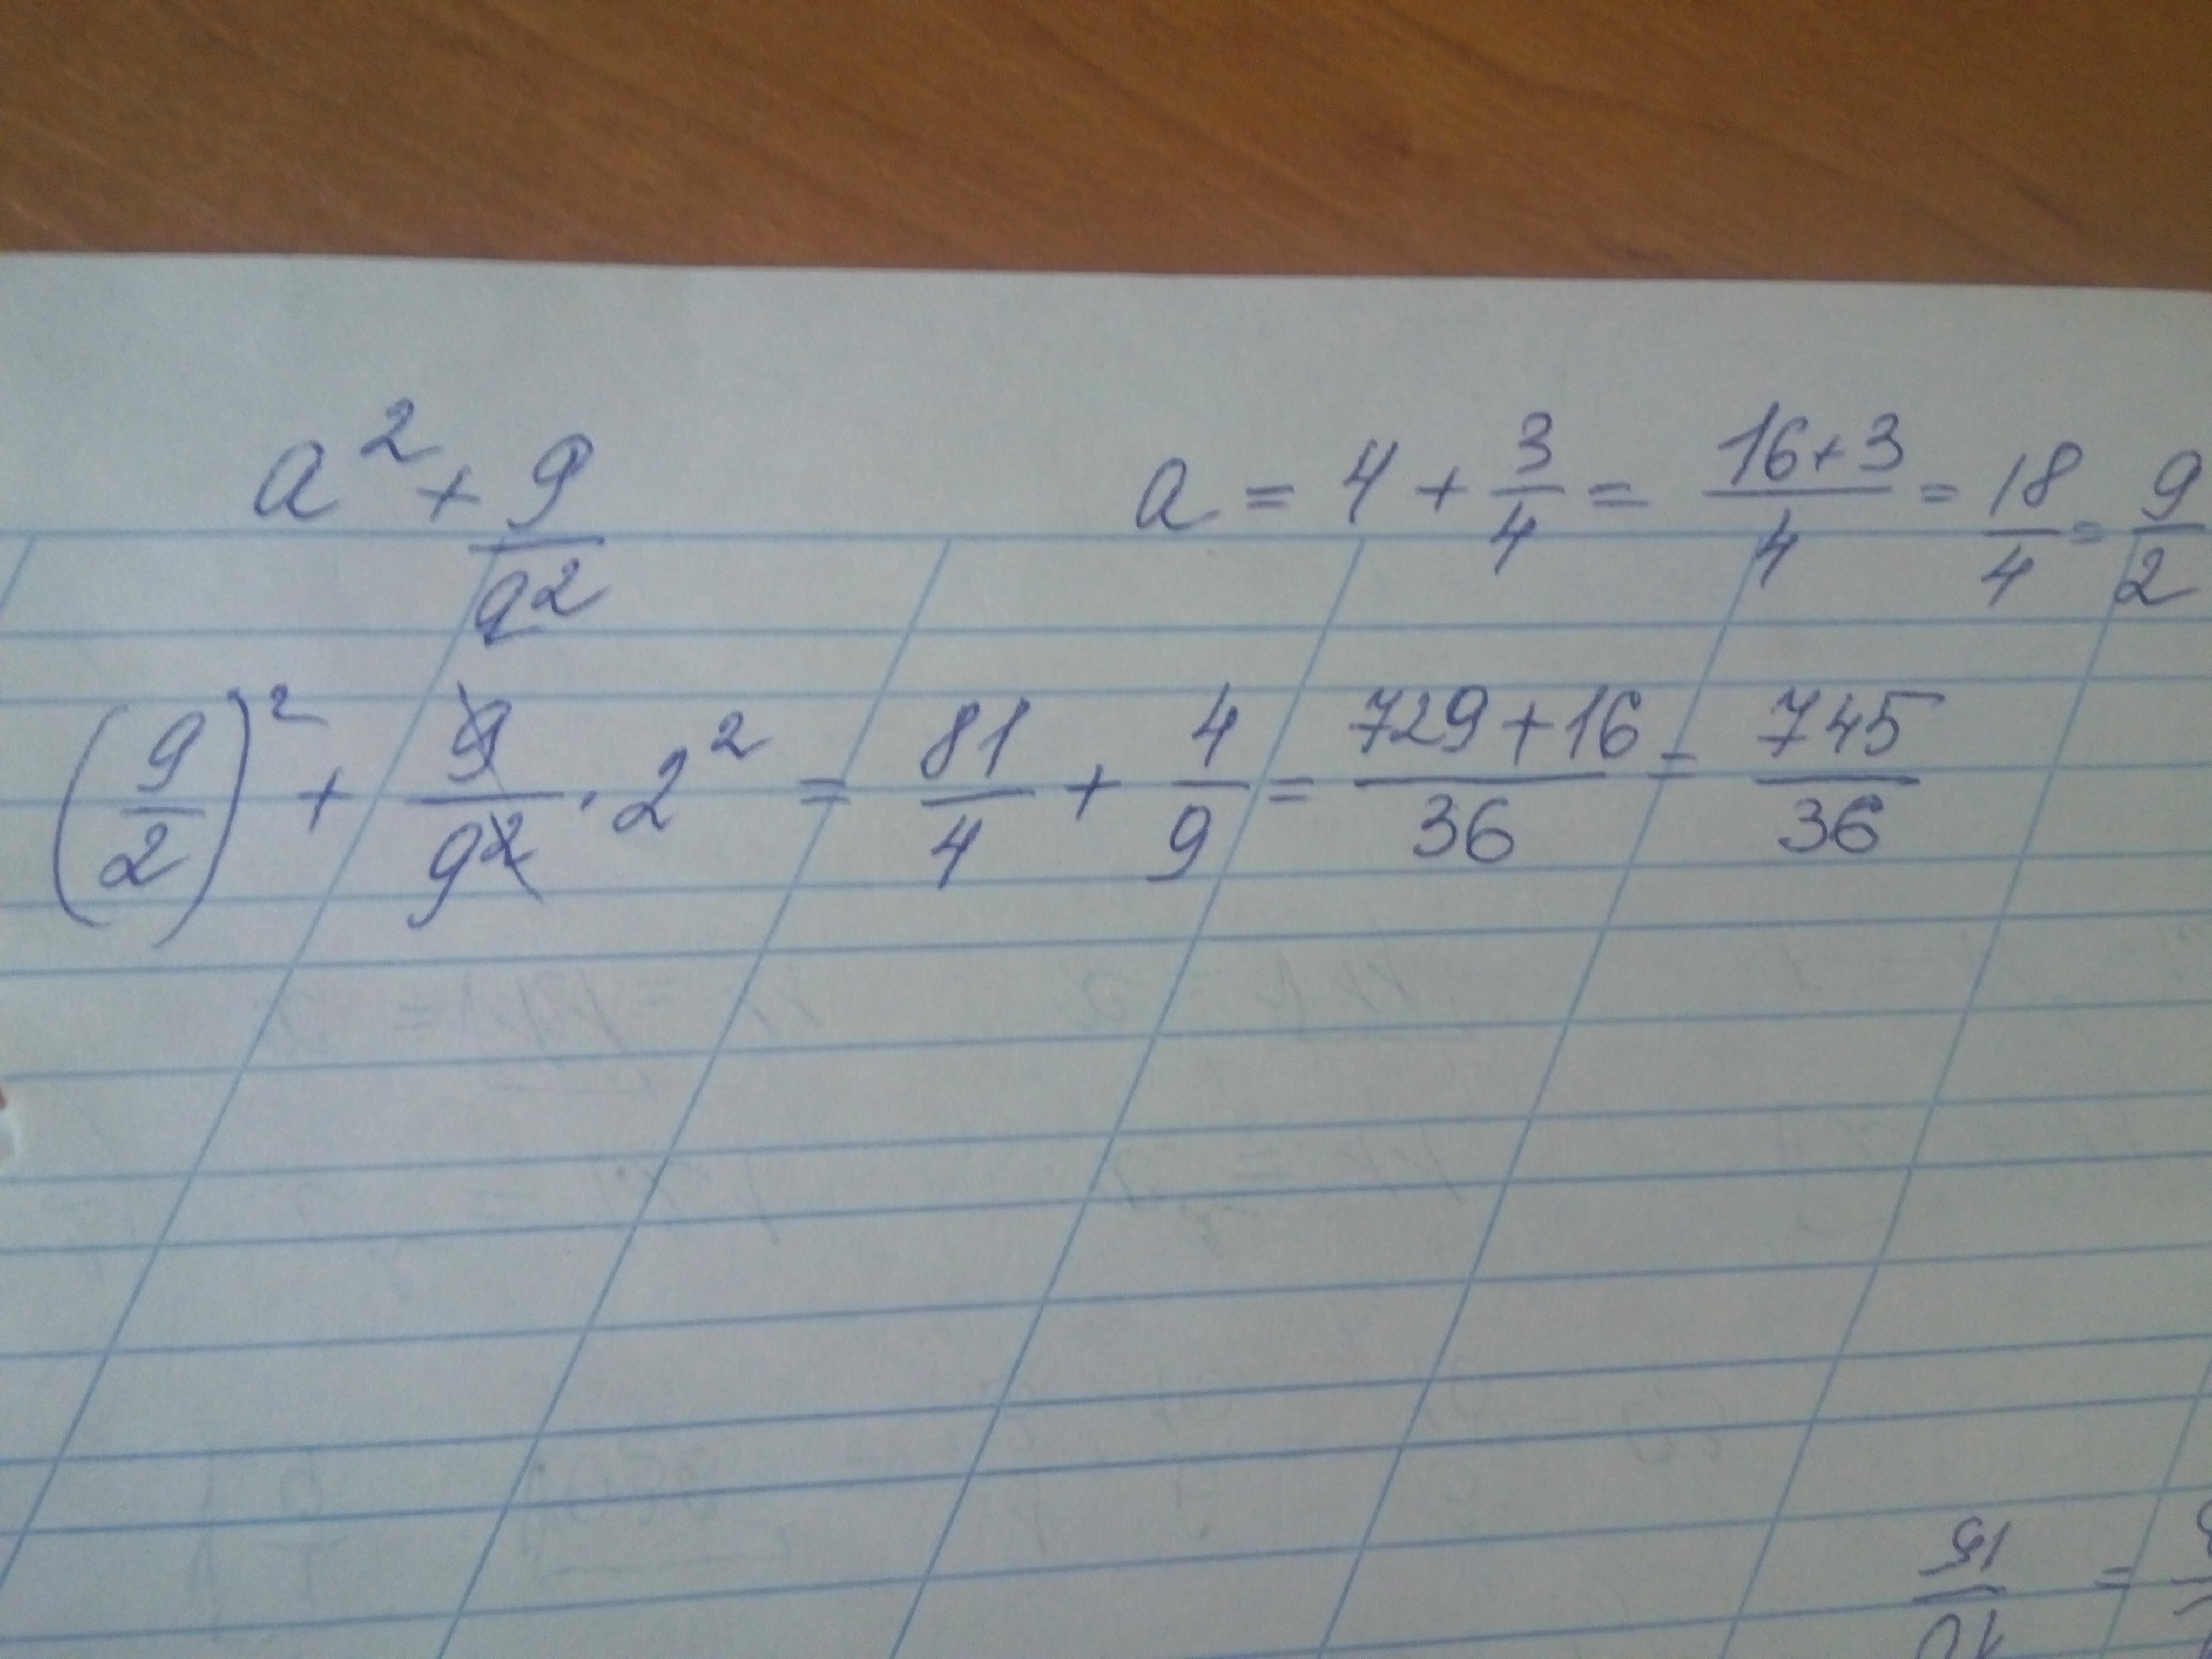 a² + 9/a² a = 4 + 3/4 = 16+3/4 = 18/4 = 9/2
(9/2)² + 9/9² · 2² = 81/4 + 4/9 = 729+16/36 = 745/36
15/10 =